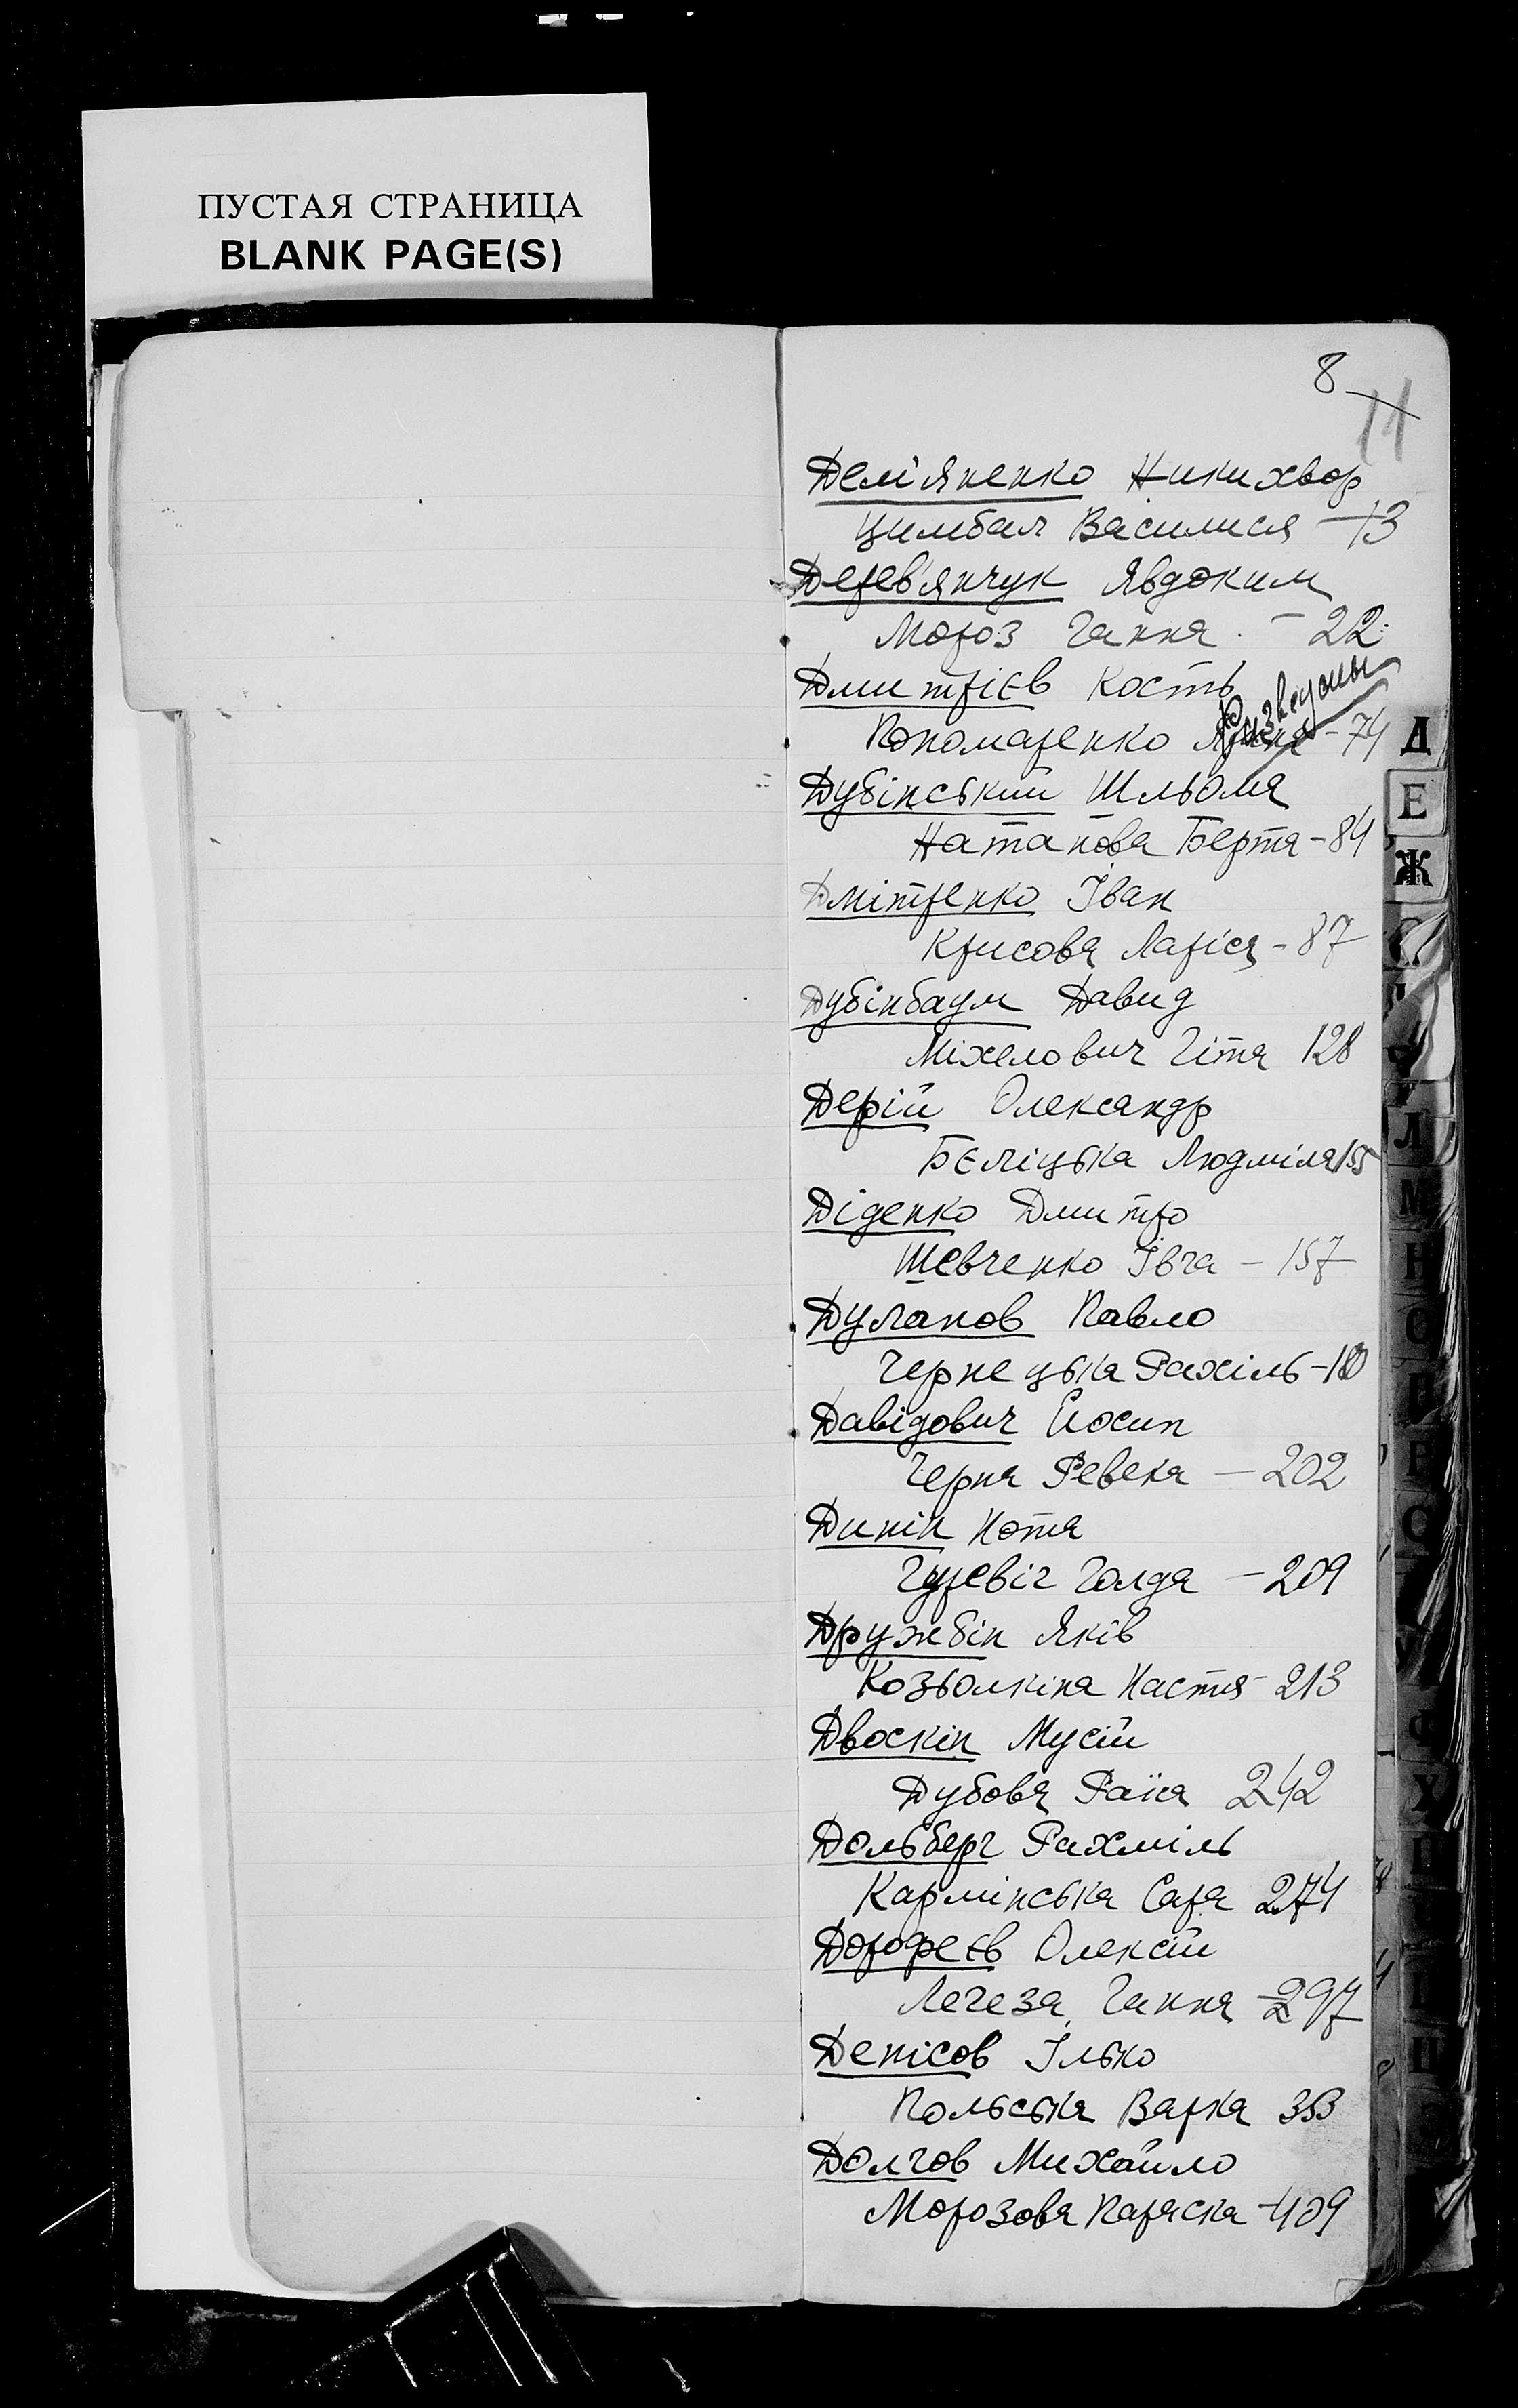 ПУСТАЯ СТРАНИЦА
BLANK PAGE(S)
8
11
Дем'яненко Никихвор
Цимбал Василися - 13
Дерев'янчук Явдоким
Мороз Ганна - 22
Дмитрієв Кость
Пономаренко - 74
Дубінський Шльома
Натанова Берта - 84
Дмітренко Іван
Крисова Ларіса - 87
Дубінбаум Давид
Міхелович Гітя 128
Дерій Олександр
Бєліцька Людміла 155
Діденко Дмитро
Шевченко Івга - 157
Дуганов Павло
Чернецька Рахіль - 180
Давідович Йосип
Черня Ревека - 202
Динін Нотя
Гуревіч Голда - 209
Дружбін Яків
Козьолкіна Настя - 213
Двоскін Мусій
Дубова Раїса 242
Дольберг Рахміль
Кармінська Сара 274
Дорофеєв Олексій
Легеза Ганна - 297
Денісов Ілько
Польська Варка 353
Долгов Михайло
Морозова Параска - 409
Д
Е
Ж
Л
М
Н
О
П
Р
С
Х